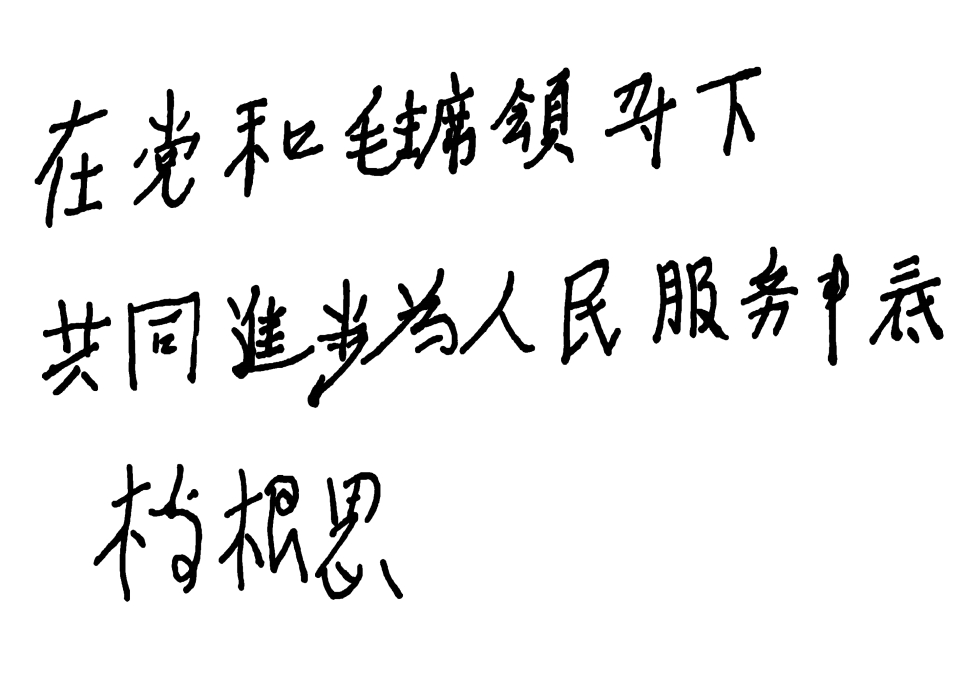 在党和毛主席領导下
共同進步为人民服务到底
杨根思